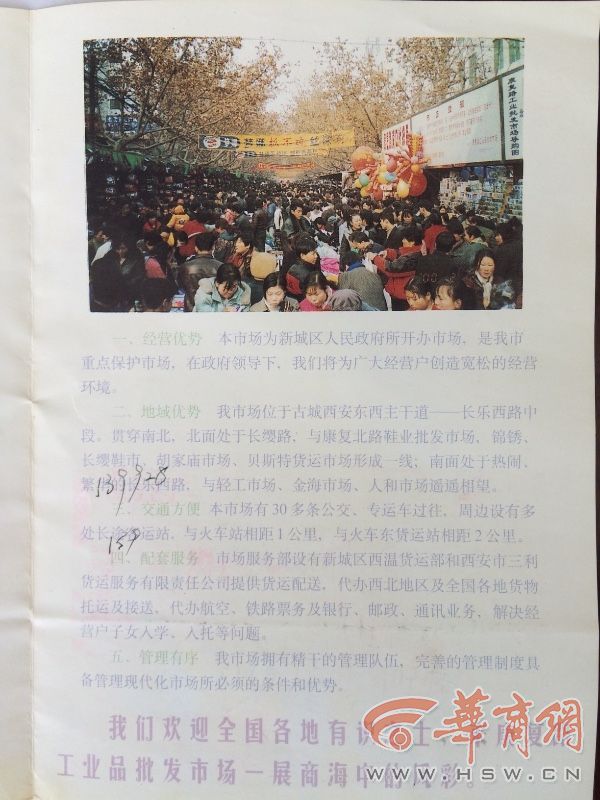 康复路工业批发市场导购图
一、经营优势 本市场为新城区人民政府所开办市场，是我市
重点保护市场，在政府领导下，我们将为广大经营户创造宽松的经营
环境。
二、地域优势 我市场位于古城西安东西主干道——长乐西路中
段。贯穿南北，北面处于长缨路，与康复北路鞋业批发市场，锦锈、
长缨鞋市，胡家庙市场、贝斯特货运市场形成一线；南面处于热闹、
长乐西路，与轻工市场、金海市场、人和市场遥遥相望。
三、交通方便 本市场有30多条公交、专运车过往，周边设有多
处长途客运站，与火车站相距1公里，与火车东货运站相距2公里。
139
四、配套服务 市场服务部设有新城区西温货运部和西安市三利
货运服务有限责任公司提供货运配送，代办西北地区及全国各地货物
托运及接送，代办航空、铁路票务及银行、邮政、通讯业务，解决经
营户子女入学、入托等问题。
五、管理有序 我市场拥有精干的管理队伍，完善的管理制度具
备管理现代化市场所必须的条件和优势。
我们欢迎全国各地有识
工业品批发市场一展商海中的风彩。
华商网
WWW.HSW.CN